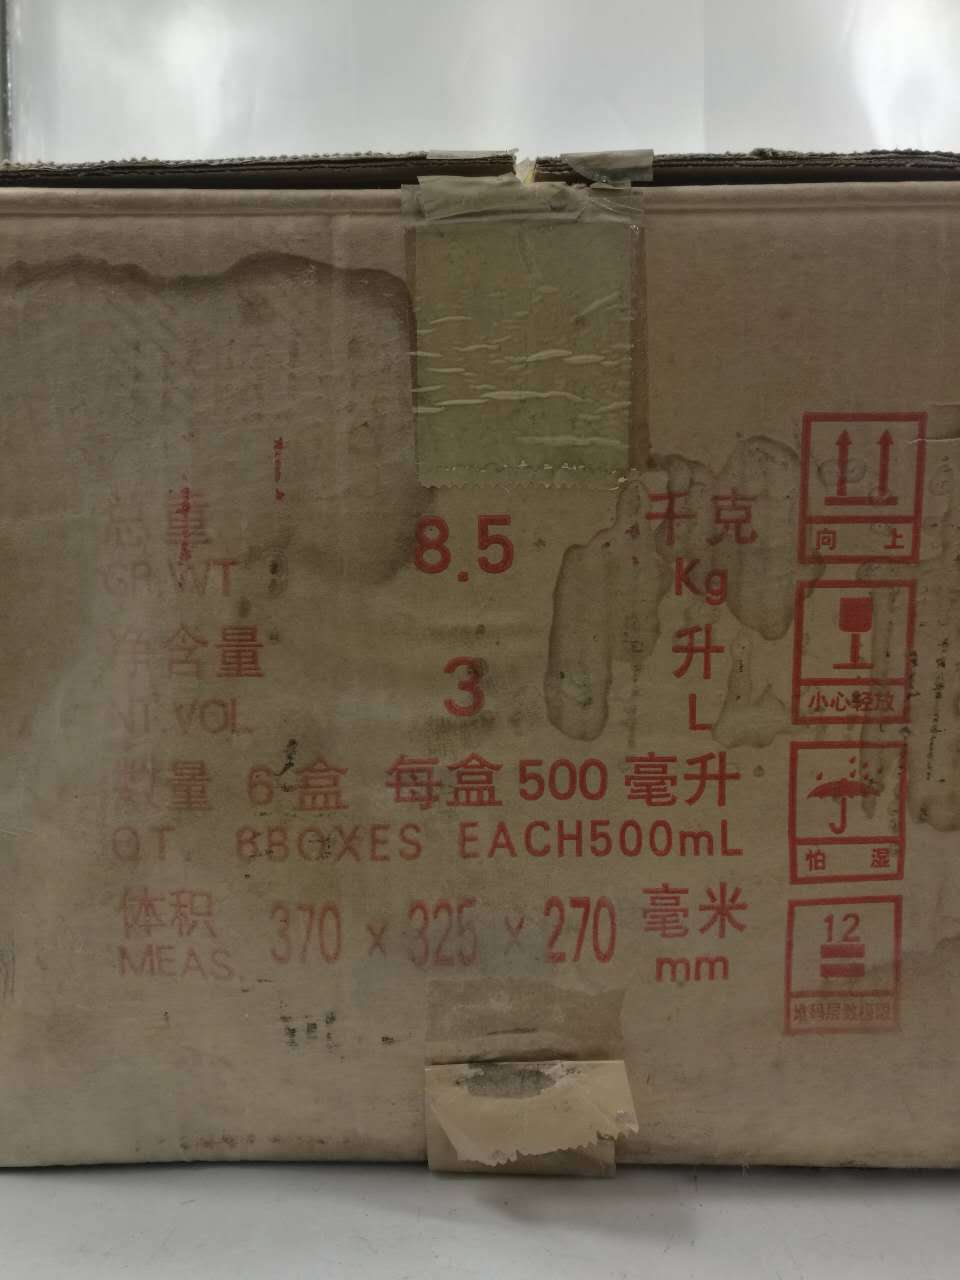 总重 8.5 千克
GR.WT. Kg
净含量 3 升
NT.VOL. L
数量 6盒 每盒500毫升
QT. 6BOXES EACH500mL
体积 370×325×270 毫米
MEAS. mm
向上
小心轻放
怕湿
12
堆码层数极限